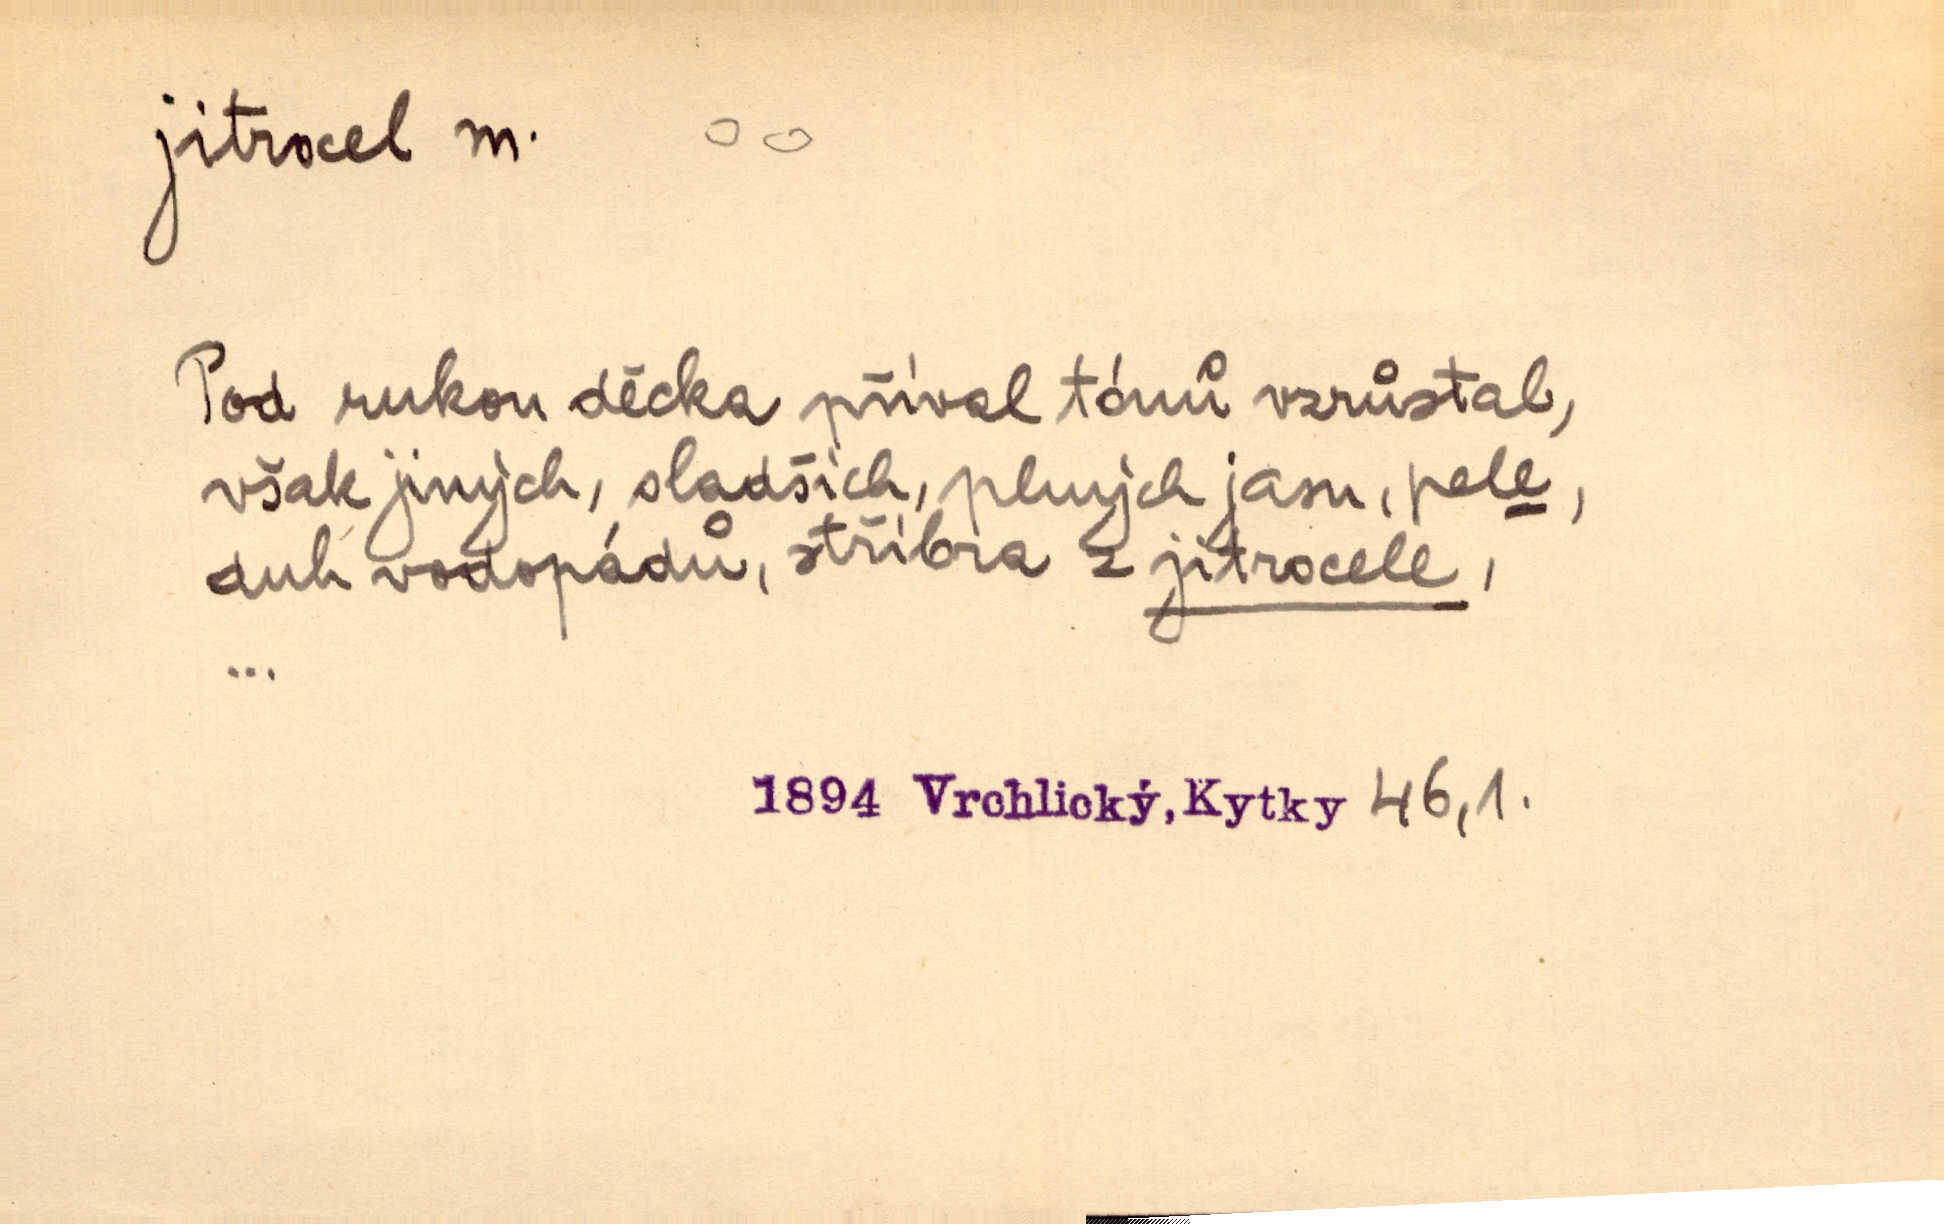 jitrocel m. oo
Pod rukou děcka příval tónů vzrůstal,
však jiných, sladších, plných jasu, pele,
duh vodopádů, stříbra z jitrocele,
...
1894 Vrchlický, Kytky 46,1.